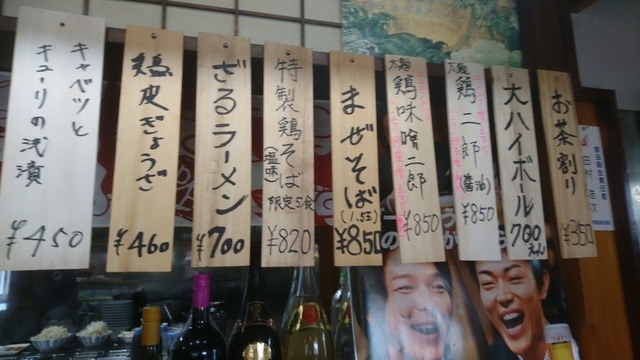 キャベツと
キュウリの浅漬
¥450
鶏皮ぎょうざ
¥460
ざるラーメン
¥700
特製鶏そば
(塩味)
限定5食
¥820
まぜそば
(1.5玉)
¥850
太麺
鶏味噌二郎
¥850
太麺
鶏二郎
(醤油)
¥850
大ハイボール
700えん
お茶割り
¥350